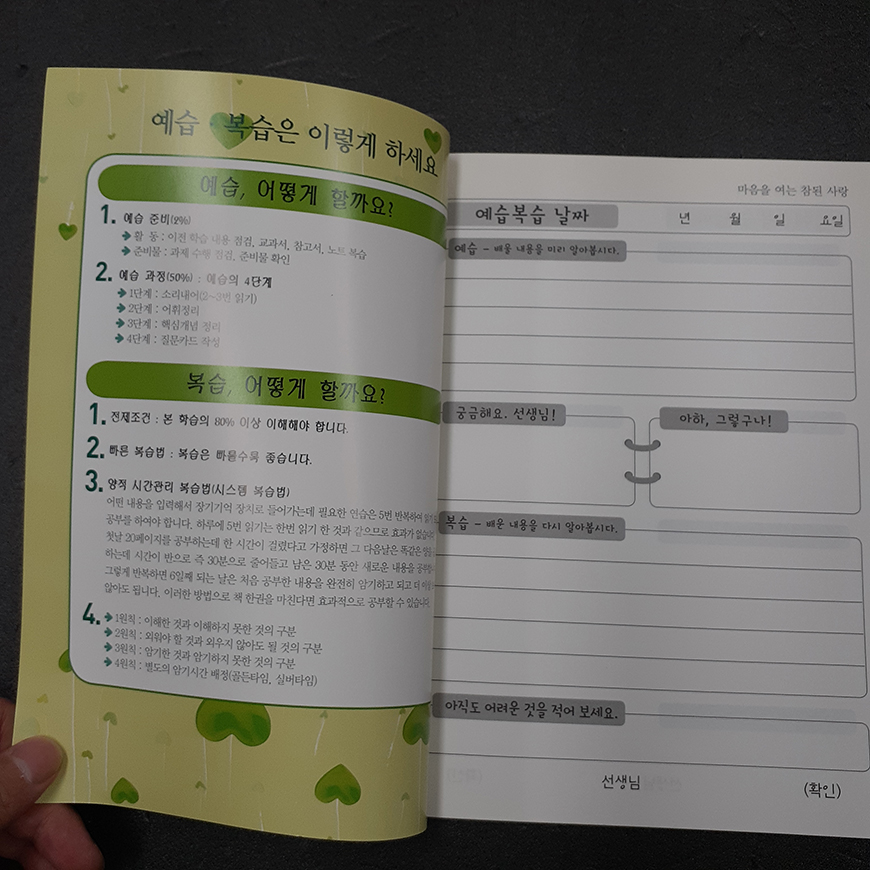 예습 복습은 이렇게 하세요
예습, 어떻게 할까요?
1. 예습 준비(2%)
활 동 : 이전 학습 내용 점검, 교과서, 참고서, 노트 복습
준비물 : 과제 수행 점검, 준비물 확인
2. 예습 과정(50%) : 예습의 4단계
1단계 : 소리내어(2~3번 읽기)
2단계 : 어휘정리
3단계 : 핵심개념 정리
4단계 : 질문카드 작성
복습, 어떻게 할까요?
1. 전제조건 : 본 학습의 80% 이상 이해해야 합니다.
2. 빠른 복습법 : 복습은 빠를수록 좋습니다.
3. 양적 시간관리 복습법(시스템 복습법)
어떤 내용을 입력해서 장기기억 장치로 들어가는데 필요한 인습은 5번 반복하여
공부를 하여야 합니다. 하루에 5번 읽기는 한번 읽기 한 것과 같으므로 효과가 없습니다
첫날 20페이지를 공부하는데 한 시간이 걸렸다고 가정하면 그 다음날은 똑같은
하는데 시간이 반으로 즉 30분으로 줄어들고 남은 30분 동안 새로운 내용을
그렇게 반복하면 6일째 되는 날은 처음 공부한 내용을 완전히 암기하고 되고 더
않아도 됩니다. 이러한 방법으로 책 한권을 마친다면 효과적으로 공부할 수 있습니다.
4. 1원칙 : 이해한 것과 이해하지 못한 것의 구분
2원칙 : 외워야 할 것과 외우지 않아도 될 것의 구분
3원칙 : 암기한 것과 암기하지 못한 것의 구분
4원칙 : 별도의 암기시간 배정(골든타임, 실버타임)
마음을 여는 참된 사랑
예습복습 날짜 년 월 일 요일
예습 - 배울 내용을 미리 알아봅시다.
궁금해요. 선생님!
아하, 그렇구나!
복습 - 배운 내용을 다시 알아봅시다.
아직도 어려운 것을 적어 보세요.
선생님 (확인)